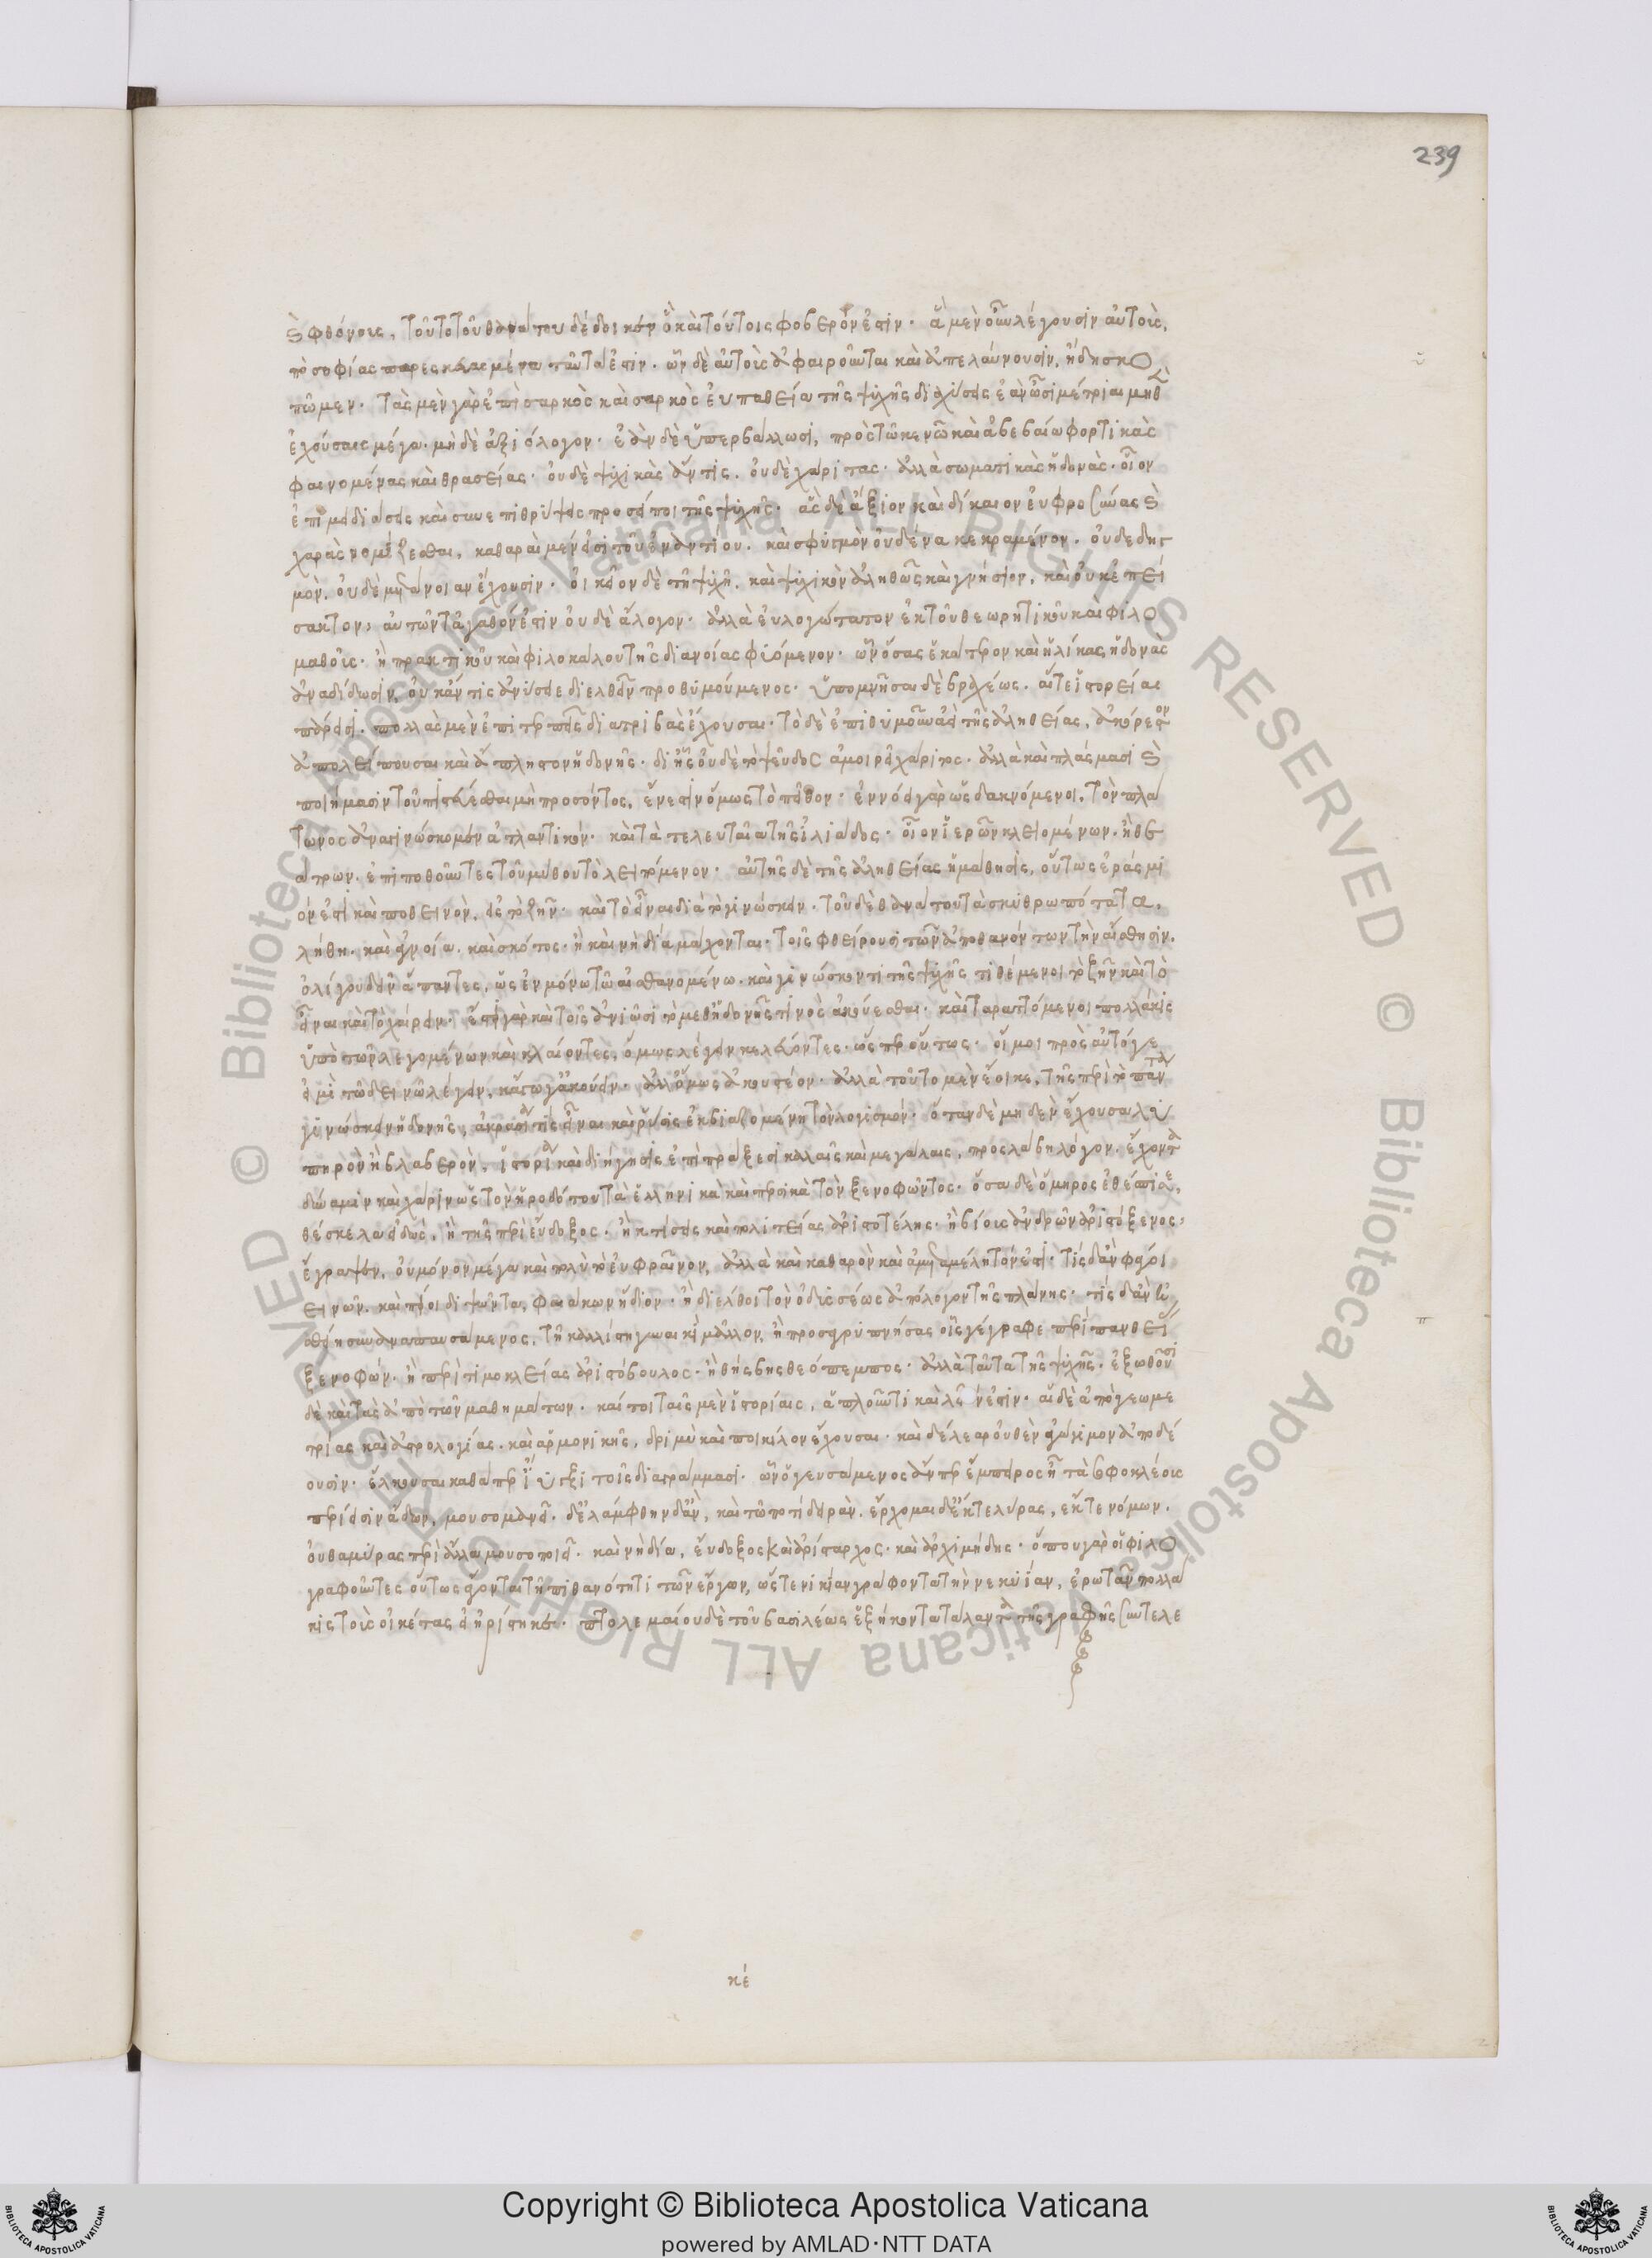 239
καὶ φθόνοις, τοῦτο τοῦ θανάτου δέδοικεν ὃ καὶ τούτοις φοβερόν ἐστιν. ἃ μὲν οὖν λέγουσιν αὐτοῖς,
ταῦτά ἐστιν. ὧν δὲ αὐτοὺς ἀφαιροῦνται καὶ ἀπελαύνουσιν, ἤδη σκο
πῶμεν. τὰς μὲν γὰρ ἐπὶ σαρκὸς καὶ σαρκὸς εὐπαθείᾳ τῆς ψυχῆς διαχύσεις ἐὰν ὦσι μέτριαι μηθὲν
ἐχούσας μέγα μηδὲ ἀξιόλογον. ἐὰν δὲ ὑπερβάλλωσι, πρὸς τῷ κενῷ καὶ ἀβεβαίῳ φορτικὰς
φαινομένας καὶ θρασείας. οὐδὲ ψυχικὰς ἄν τις, οὐδὲ χαρὰς. ἀλλὰ σωματικὰς ἡδονὰς. οἷον
ἐπιμειδιάσεις καὶ συνεπιθρύψεις προσείποι τῆς ψυχῆς. ἃς δὲ ἄξιον καὶ δίκαιον εὐφροσύνας καὶ
χαρὰς νομίζεσθαι, καθαραὶ μέν εἰσι τοῦ ἐναντίου. καὶ σφυγμὸν οὐδένα κεκραμένον. οὐδὲ δηγ
μὸν. οὐδὲ μετάνοιαν ἔχουσιν. οἰκεῖον δὲ τῇ ψυχῇ. καὶ ψυχικὸν ἀληθῶς καὶ γνήσιον, καὶ οὐκ ἐπεί
σακτον, αὐτῶν τἀγαθόν ἐστιν οὐδὲ ἄλογον. ἀλλὰ εὐλογώτατον ἐκ τοῦ θεωρητικοῦ καὶ φιλο
μαθοῦς. ἢ πρακτικοῦ καὶ φιλοκάλου τῆς διανοίας φυόμενον. ὧν ὅσας ἑκάτερον καὶ ἡλίκας ἡδονὰς
ἀναδίδωσιν, οὐκ ἄν τις ἀνύσειε διελθεῖν προθυμούμενος. ὑπομνῆσαι δὲ βραχέως. αἵ τε ἱστορίαι
πάρεισι. πολλὰς μὲν ἐπιτερπεῖς διατριβὰς ἔχουσαι. τὸ δὲ ἐπιθυμοῦν ἀεὶ τῆς ἀληθείας, ἀκόρεστον
ἀπολείπουσαι καὶ ἄπληστον ἡδονῆς. δι' ἣν οὐδὲ τὸ ψεῦδος ἀμοιρεῖ χάριτος. ἀλλὰ καὶ πλάσμασι καὶ
ποιήμασιν τοῦ πιστεύεσθαι μὴ προσόντος, ἔνεστιν ὅμως τὸ πεῖθον. ἐννόει γὰρ ὡς δακνόμενοι, τὸν Πλά
τωνος ἀναγινώσκομεν ἀτλαντικόν. καὶ τὰ τελευταῖα τῆς ἰλιάδος. οἷον ἱερῶν κλειομένων. ἢ θε
άτρων. ἐπιποθοῦντες τοῦ μύθου τὸ λειπόμενον. αὐτῆς δὲ τῆς ἀληθείας ἡ μάθησις, οὕτως ἐράσμι
όν ἐστι καὶ ποθεινὸν, ὡς τὸ ζῆν. καὶ τὸ εἶναι διὰ τὸ γινώσκειν. τοῦ δὲ θανάτου τὰ σκυθρωπότατα,
λήθη. καὶ ἄγνοια. καὶ σκότος. ᾗ καὶ νὴ Δία μάχονται. τοῖς φθείρουσι τῶν ἀποθανόντων τὴν αἴσθησιν.
ὀλίγου δεῖν ἅπαντες, ὡς ἐν μόνῳ τῷ αἰσθανομένῳ. καὶ γινώσκοντι τῆς ψυχῆς τιθέμενοι τὸ ζῆν καὶ τὸ
εἶναι καὶ τὸ χαίρειν. ἔστι γὰρ καὶ τοῖς ἀνιῶσι τὸ μεθ' ἡδονῆς τινὸς ἀκούεσθαι. καὶ ταραττόμενοι πολλάκις
ὑπὸ τῶν λεγομένων καὶ κλαίοντες, ὅμως λέγειν κελεύοντες. ὥσπερ οὗτος. οἴμοι πρὸς αὐτῷ γε
εἰμὶ τῷ δεινῷ λέγειν, κἄγωγ' ἀκούειν. ἀλλ' ὅμως ἀκουστέον. ἀλλὰ τοῦτο μὲν ἔοικε, τῆς περὶ τὸ πάντα
γινώσκειν ἡδονῆς, ἀκρασία τίς εἶναι καὶ ῥύσις ἐκβιαζομένη τὸν λογισμόν. ὅταν δὲ μηδὲν ἔχουσα λυ
πηρὸν ἢ βλαβερὸν, ἱστορία καὶ διήγησις ἐπὶ πράξεσι καλαῖς καὶ μεγάλαις, προσλάβῃ λόγον. ἔχοντα
δύναμιν καὶ χάριν ὡς τὸν Ἡροδότου τὰ ἑλληνικὰ καὶ περσικὰ τὸν Ξενοφῶντος. ὅσα δὲ Ὅμηρος ἐθέσπισε,
θέσκελα εἰδώς, ἢ τῆς περὶ Εὔδοξος. ἢ κτίσεις καὶ πολιτείας Ἀριστοτέλης. ἢ βίους ἀνδρῶν Ἀριστόξενος,
ἔγραψεν, οὐ μόνον μέγα καὶ πολὺ τὸ εὐφραῖνον, ἀλλὰ καὶ καθαρὸν καὶ ἀμεταμέλητόν ἐστι. τίς δ' ἂν φάγοι
πεινῶν. καὶ πίοι διψῶν τὰ Φαιάκων ἥδιον. ἢ διέλθοι τὸν Ὀδυσσέως ἀπόλογον τῆς πλάνης. τίς δ' ἂν ἡ
σθείη συναναπαυσάμενος, τῇ καλλίστῃ γυναικὶ μᾶλλον, ἢ προσαγρυπνήσας οἷς γέγραφε περὶ Πανθείας
Ξενοφῶν. ἢ περὶ Τιμοκλείας Ἀριστόβουλος. ἢ Θήβης Θεόπεμπος. ἀλλὰ ταῦτα τῆς ψυχῆς. ἐξωθοῦσι
δὲ καὶ τὰς ἀπὸ τῶν μαθημάτων. καίτοι ταῖς μὲν ἱστορίαις, ἁπλοῦν τι καὶ λεῖόν ἐστιν. αἱ δὲ ἀπὸ γεωμε
τρίας καὶ ἀστρολογίας. καὶ ἁρμονικῆς, δριμὺ καὶ ποικίλον ἔχουσαι. καὶ δέλεαρ οὐθὲν ἀγώγιμον ἀποδέ
ουσιν. ἕλκουσαι καθάπερ ἴυγξι τοῖς διαγράμμασι. ὧν ὁ γευσάμενος ἄνπερ ἔμπειρος ᾖ τὰ Σοφοκλέους
περίεισιν ᾄδων, μουσομανεῖ. δ' ἐλάμφθην δ' ἂν, καὶ τῷ ποτὶ δειρὰν. ἔρχομαι δ' ἔκ τε λύρας, ἔκ τε νόμων.
οὓς Θαμύρας περίαλλα μουσοποιεῖ. καὶ νὴ Δία, Εὔδοξος καὶ Ἀρίσταρχος. καὶ Ἀρχιμήδης. ὅπου γὰρ οἱ φιλο
γραφοῦντες οὕτως ἄγονται τῇ πιθανότητι τῶν ἔργων, ὥστε Νικίαν γράφοντα τὴν νεκυίαν, ἐρωτᾶν πολλά
κις τοὺς οἰκέτας εἰ ἠρίστηκε. Πτολεμαίου δὲ τοῦ βασιλέως ἑξήκοντα τάλαντα τῆς γραφῆς συντελε
κέ
Copyright © Biblioteca Apostolica Vaticana
powered by AMLAD·NTT DATA